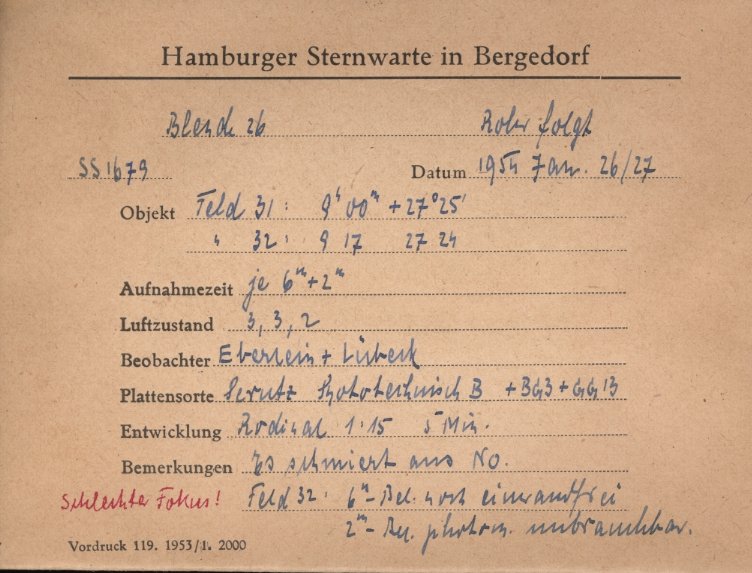 Hamburger Sternwarte in Bergedorf
Blende 26 Rohr folgt
SS 1679 Datum 1954 Jan. 26/27
Objekt Feld 31 : 9ʰ 00ᵐ + 27° 25'
" 32 : 9 17 27 24
Aufnahmezeit je 6ᵐ + 2ᵐ
Luftzustand 3, 3, 2
Beobachter Eberlein + Lübeck
Plattensorte Perutz Phototechnisch B + BG3 + GG 13
Entwicklung Rodinal 1:15 5 Min.
Bemerkungen Es schmiert aus NO.
Schlechter Fokus! Feld 32 : 6ᵐ- Bel. noch einwandfrei
2ᵐ- Bel. photom. unbrauchbar.
Vordruck 119. 1953/1. 2000